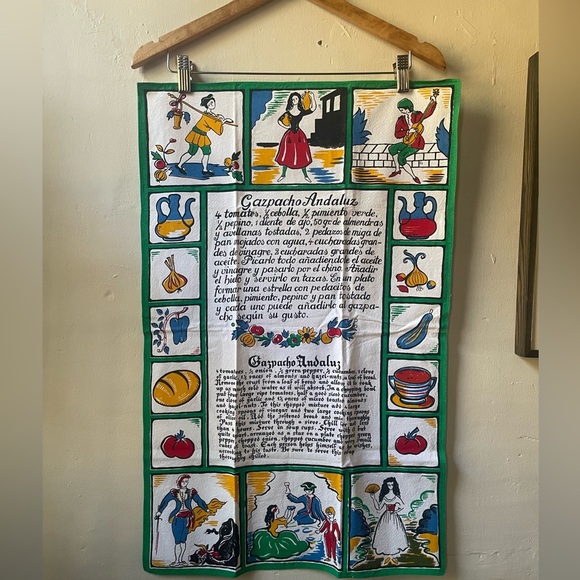 Gazpacho Andaluz
4 tomates, ½ cebolla, ½ pimiento verde,
½ pepino, 1 diente de ajo, 50 gr. de almendras
y avellanas tostadas, 2 pedazos de miga de
pan mojados con agua, 4 cucharadas gran-
des de vinagre, 3 cucharadas grandes de
aceite. Picarlo todo añadiendole el aceite
y vinagre y pasarlo por el chino. Añadir
el hielo y servirlo en tazas. En un plato
formar una estrella con pedacitos de
cebolla, pimiento, pepino y pan tostado
y cada uno puede añadirlo al gazpa-
cho según su gusto.
Gazpacho Andaluz
4 tomatoes, ½ onion, ½ green pepper, ½ cucumber, 1 clove
of garlic, 1½ ounces of almonds and hazel-nuts, a loaf of bread.
Remove the crust from a loaf of bread and allow it to soak
up as much cold water as it will absorb. In a chopping bowl
put four large ripe tomatoes, half a good sized cucumber,
a clove of garlic and 1½ ounces of mixed toasted almonds
and nuts. To this chopped mixture add 4 large
cooking spoons of vinegar and two large cooking spoons
of olive oil. Add the softened bread and mix thoroughly.
Pass this mixture through a sieve. Chill for not less
than 4 hours. Serve in soup cups. Serve with it
plate, arranged as a star on a plate chopped green
pepper, chopped onion, chopped cucumber and small
bread toast. Each person helps himself as he wishes,
according to his taste. Be sure to serve this
thoroughly chilled.